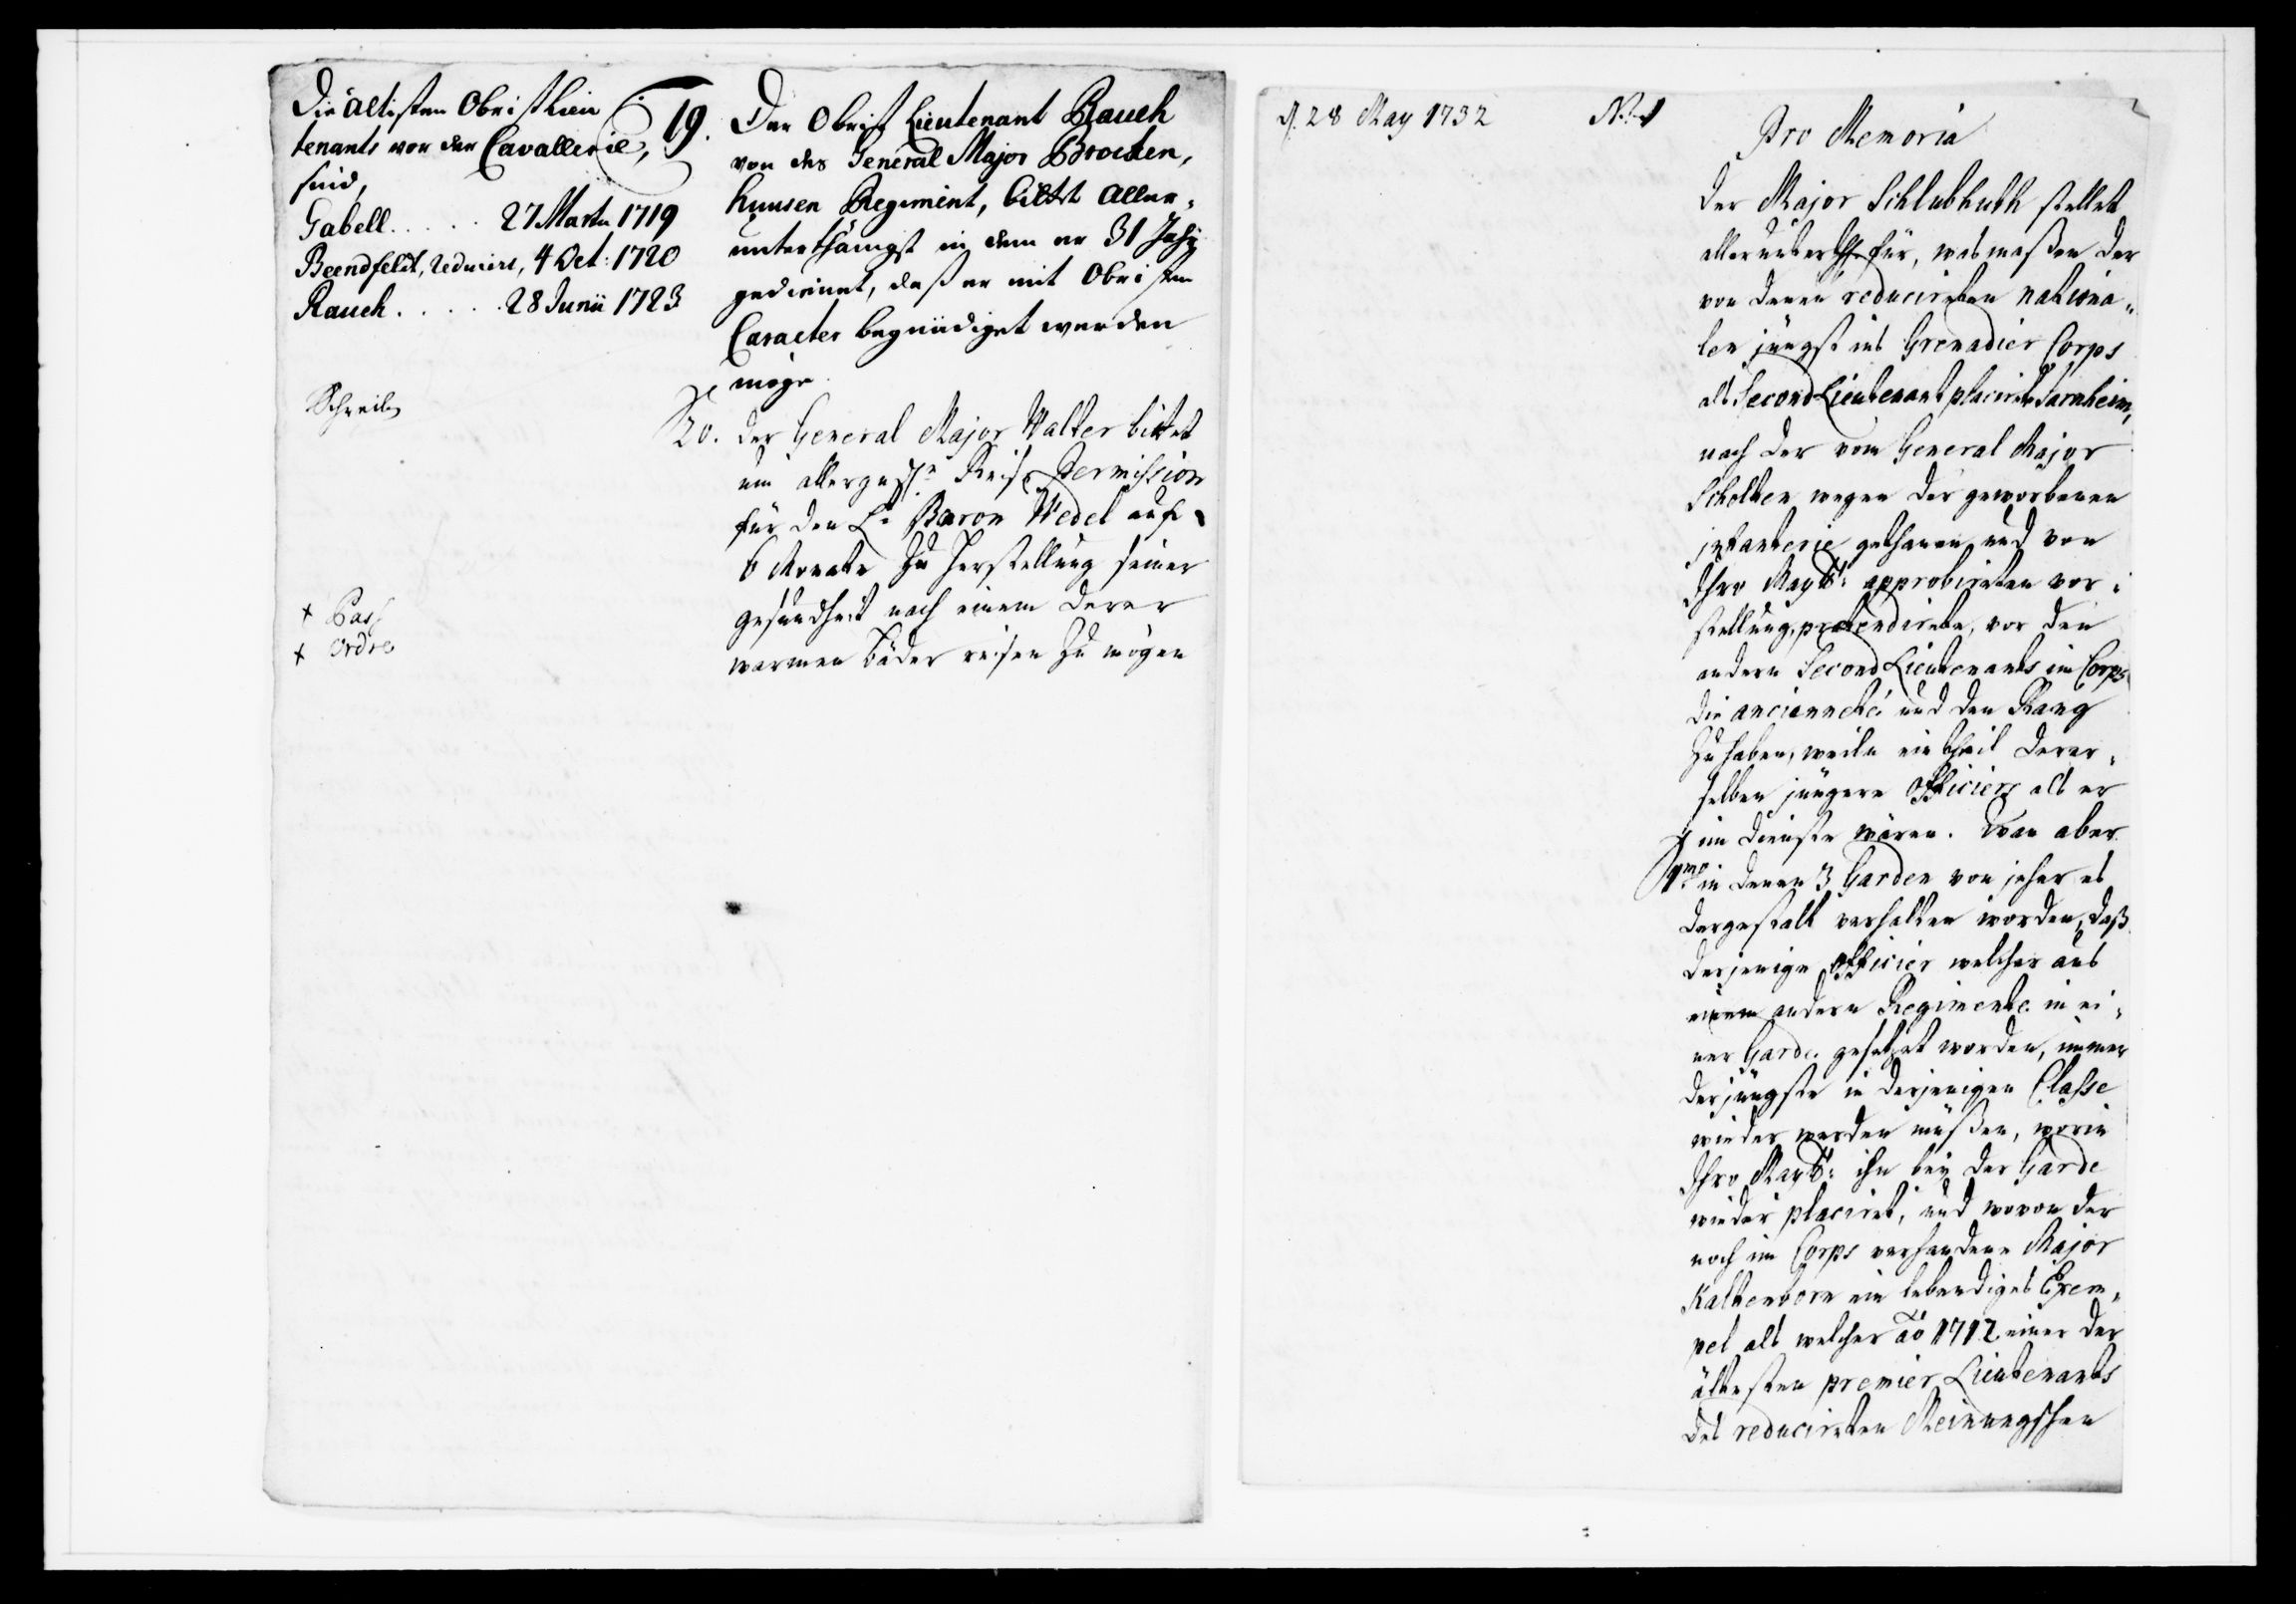 Die ältisten Obristlieu
tenants von der Cavallerie,
sind,
Gabell..... 27 Martii 1719
Beendfeldt, reduciert, 4 Oct: 1720
Rauch..... 28 Junii 1723
19. Der Obrist Lieutenant Rauch
von des General Major Brocken,
huusen Regiment, bittet aller-
unterthänigst in dem er 31 Jahr
gedienet, daß er mit Obristen
Caracter begnädiget werden
möge.
Schreiben
20. der General Major Walter bittet
um allergndste Reise Permission
für den Lt Baron Wedel auf
6 Monate zu Herstellung seiner
gesundheit nach einem derer
warmen bäder reisen zu mögen
+ Pass
+ Ordre
d. 28 May 1732
No: 1
Pro Memoria
der Major Schlubhuth stellet
allerunterth für, was maßen der
von denen reducireten nationa-
len jüngst ins Grenadier Corps
als Second Lieutenant placirete Jarnheim,
nach der vom General Major
Scholten wegen der geworbenen
infanterie gethanen und von
Ihro Maytt: approbireten vor-
stellung, prætendirete, vor den
andern Second Lieutenants im Corps
die ancienneté und den Rang
zu haben, weiln ein theil derer-
selben jüngere Officiers als er
im dienste wären. Wan aber
1mo in denen 3 Garden von jeher es
dergestalt verhalten worden, daß
derjenige Officier welcher aus
einem andern Regimente in ei-
ner Garde gesetzet worden, immer
der jüngste in derjenigen Classe
wieder werden müßen, worin
Ihro Maytt: ihn bey der Garde
wieder placiret, und wovon der
noch im Corps vorhandene Major
Kaltenborn ein lebendiges Exem-
pel als welcher ao 1712 einer der
ältesten premier Lieutenants
des reducireten Meinungschen